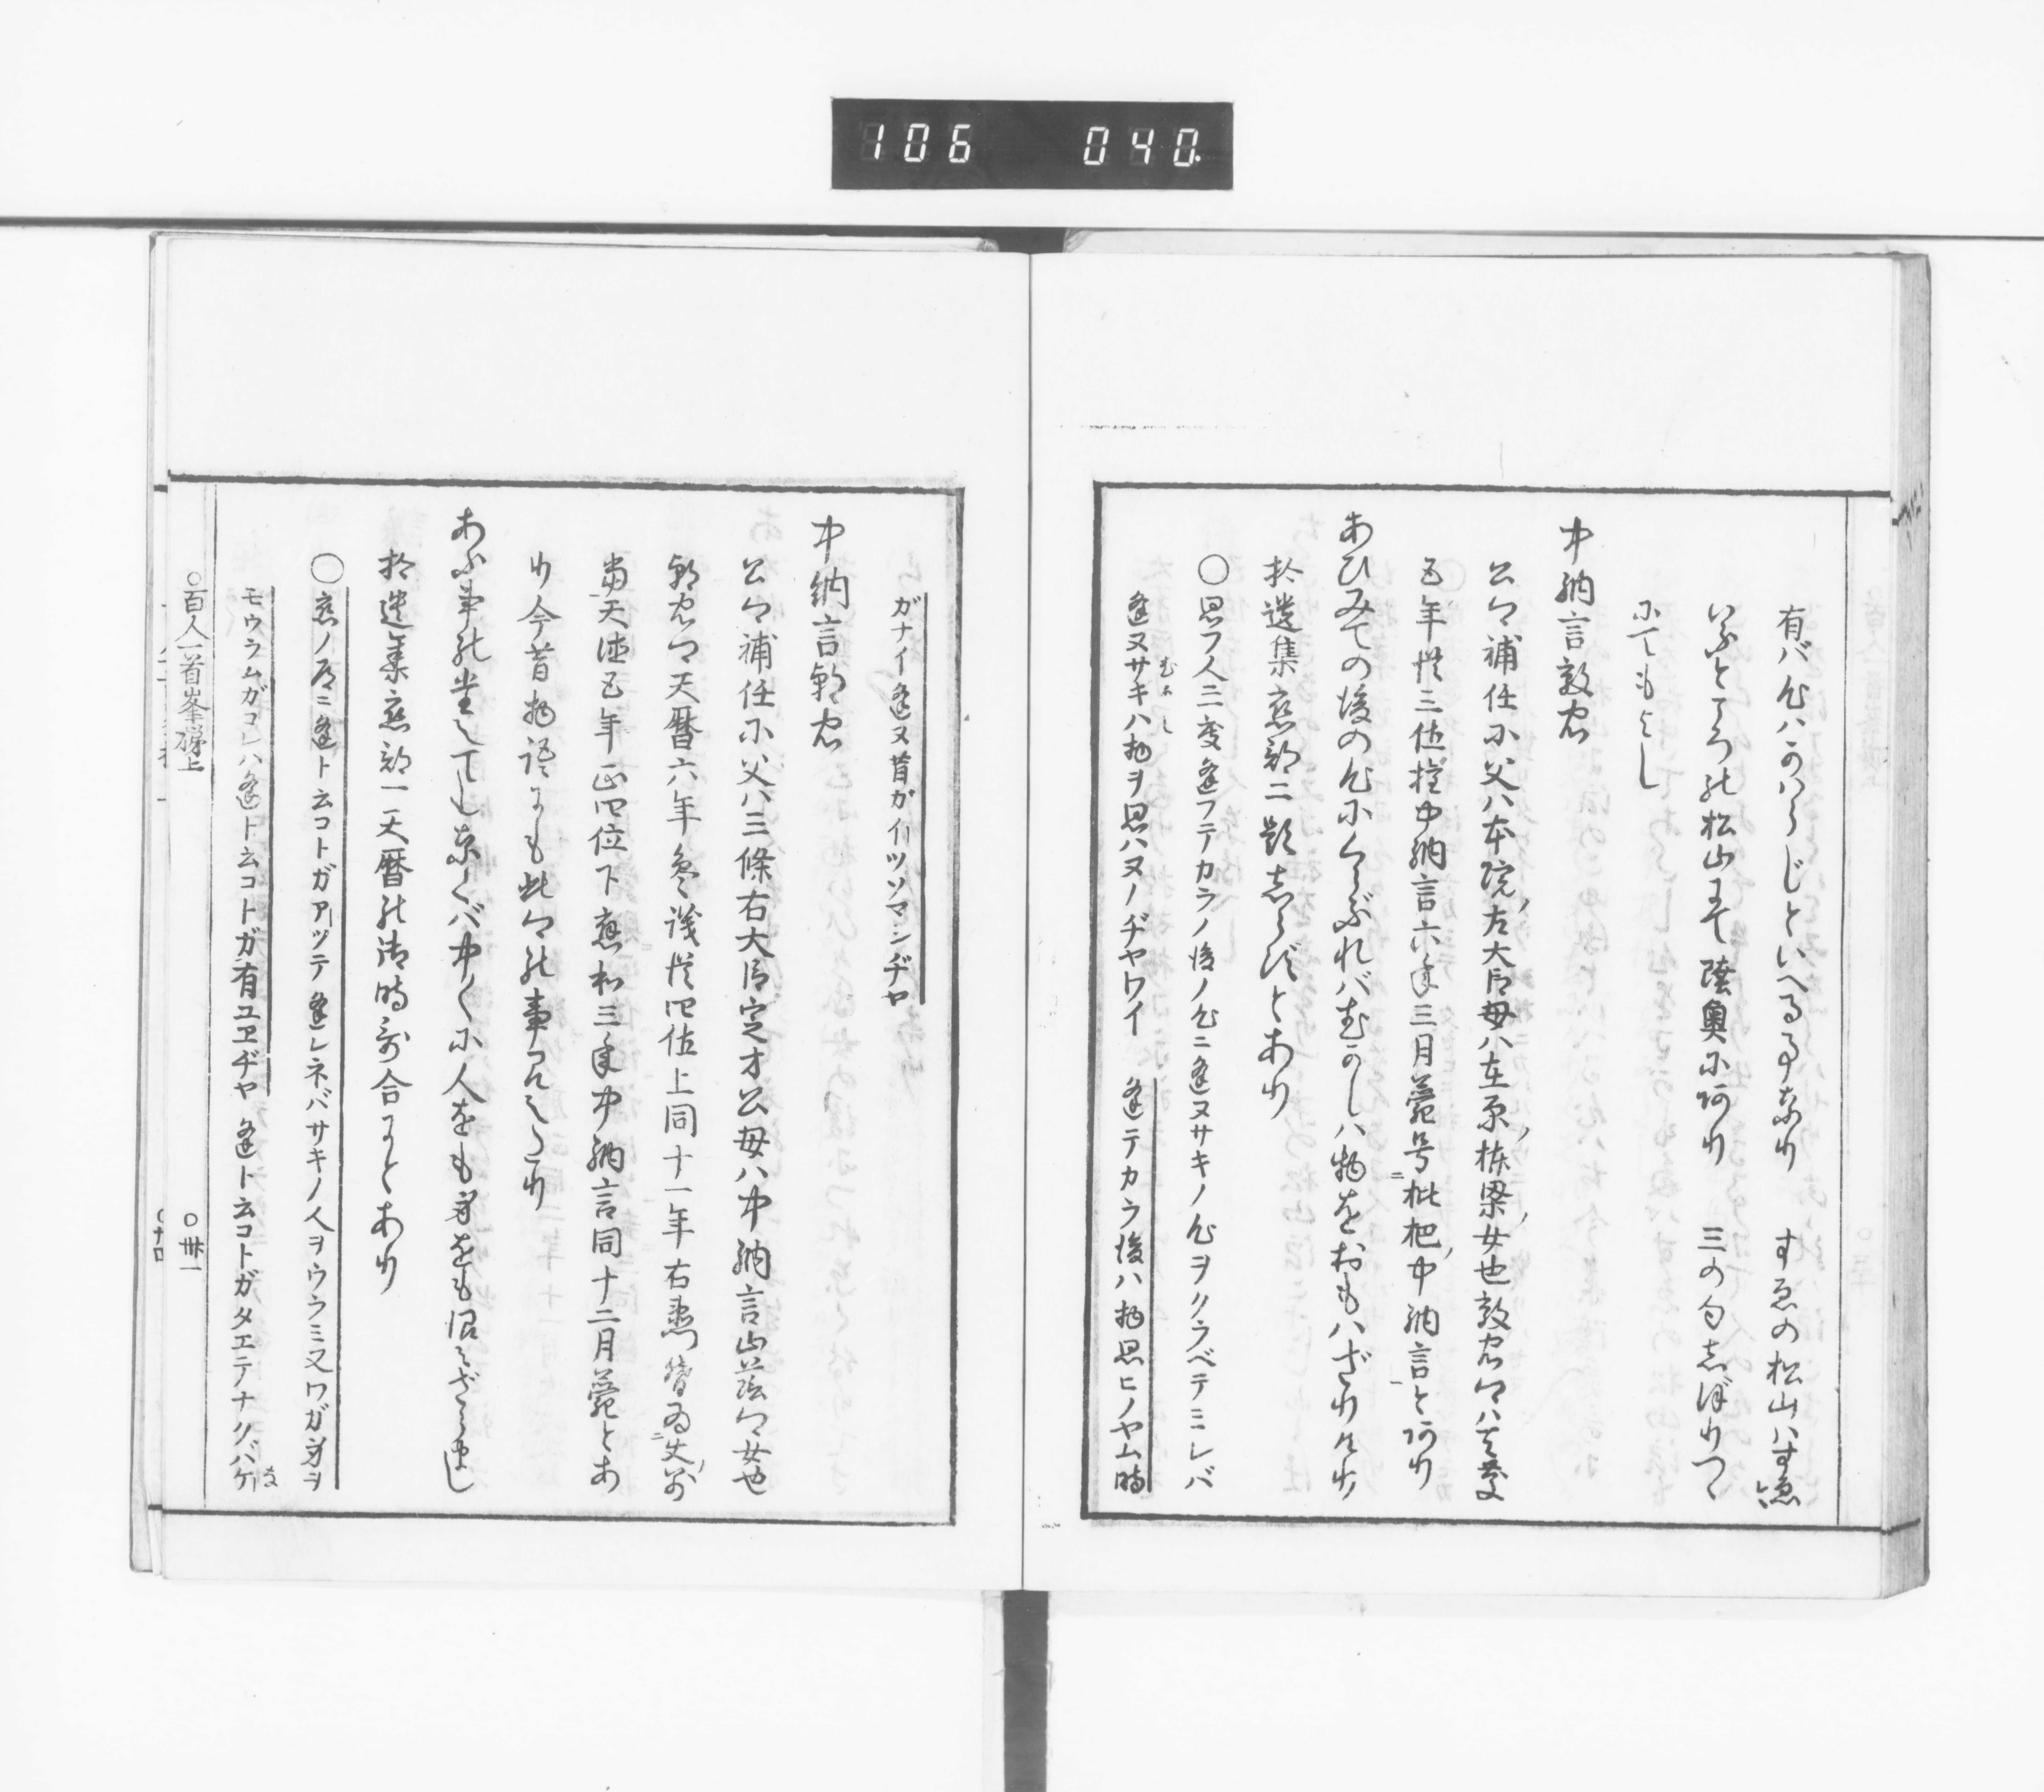 106 040
有バ心ハかはらじといへる事なり すゑの松山ハすゑ
いふところの松山にて陸奥にあり 三の句しぼりつゝ
にてもよし
中納言敦忠
公卿補任に父ハ本院左大臣母ハ在原棟梁女也敦忠卿ハ天慶
五年従三位権中納言六年三月薨号枇杷中納言とあり
あひみての後の心にくらぶれバむかしハ物をおもハざりけり
拾遺集恋部二題しらずとあり
○思フ人ニ一度逢フテカラノ後ノ心ニ逢ヌサキノ心ヲクラベテミレバ
逢ヌサキハ物ヲ思ハヌノヂヤワイ 逢テカラ後ハ物思ヒノヤム時
むかし
ガナイ逢ヌ昔ガイツソマシヂヤ
中納言朝忠
公卿補任に父ハ三條右大臣定方公母ハ中納言山蔭卿女也
朝忠卿天暦六年参議従四位上同十一年右衛門督
天徳五年正四位下應和三年中納言同十二月薨とあ
り今昔物語にも此卿の事見えたり
あふ事の堂えてしなくバ中〱に人をも身をも恨みざらまし
拾遺集恋部一天暦の御時哥合にとあり
○恋ノ道ニ逢ト云コトガアツテ逢レネバサキノ人ヲウラミ又ワガ身ヲ
モウラムガコレハ逢ト云コトガ有ユヱヂヤ 逢ト云コトガタエテナクバケ
○百人一首峯梯上 ○卅一